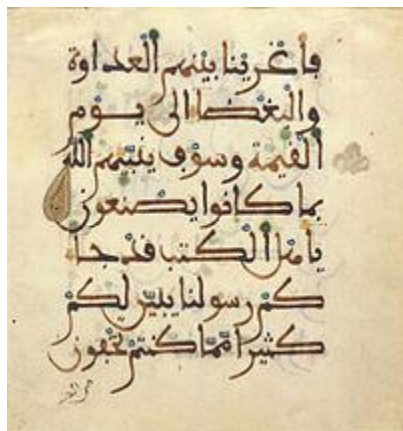 فاغرينا بينهم العداوة
والبغضا الى يوم
القيمة وسوف ينبئهم الله
بما كانوا يصنعون
يا هل الكتب قد جا
كم رسولنا يبين لكم
كثيرا مما كنتم تخفون